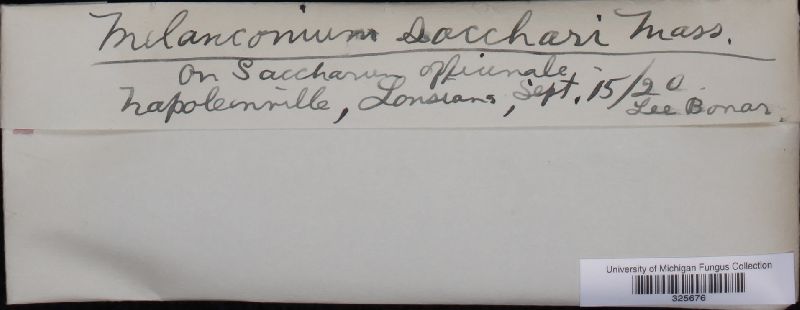 Melanconium sacchari Mass.
On Saccharum officinale,
Napoleinville, Lonsiana, Sept. 15/20.
Lee Bonar.
University of Michigan Fungus Collection
325676